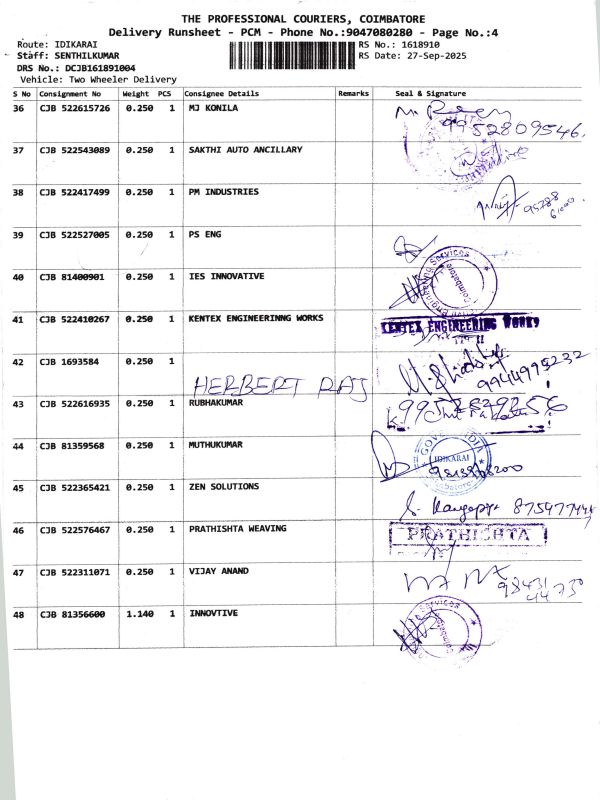 THE PROFESSIONAL COURIERS, COIMBATORE
Delivery Runsheet - PCM - Phone No.:9047080280 - Page No.:4
Route: IDIKARAI RS No.: 1618910
Staff: SENTHILKUMAR RS Date: 27-Sep-2025
DRS No.: DCJB161891004
Vehicle: Two Wheeler Delivery
S No Consignment No Weight PCS Consignee Details Remarks Seal & Signature
36 CJB 522615726 0.250 1 MJ KONILA
9952809546.
37 CJB 522543089 0.250 1 SAKTHI AUTO ANCILLARY
38 CJB 522417499 0.250 1 PM INDUSTRIES
39 CJB 522527005 0.250 1 PS ENG
40 CJB 81400901 0.250 1 IES INNOVATIVE
Engineering Services
Coimbatore
41 CJB 522410267 0.250 1 KENTEX ENGINEERINNG WORKS
KENTEX ENGINEERING WORKS
42 CJB 1693584 0.250 1
HERBERT RAJ
9944995232
43 CJB 522616935 0.250 1 RUBHAKUMAR
44 CJB 81359568 0.250 1 MUTHUKUMAR
IDIKARAI
45 CJB 522365421 0.250 1 ZEN SOLUTIONS
46 CJB 522576467 0.250 1 PRATHISHTA WEAVING
PRATHISHTA
47 CJB 522311071 0.250 1 VIJAY ANAND
98431
44730
48 CJB 81356600 1.140 1 INNOVTIVE